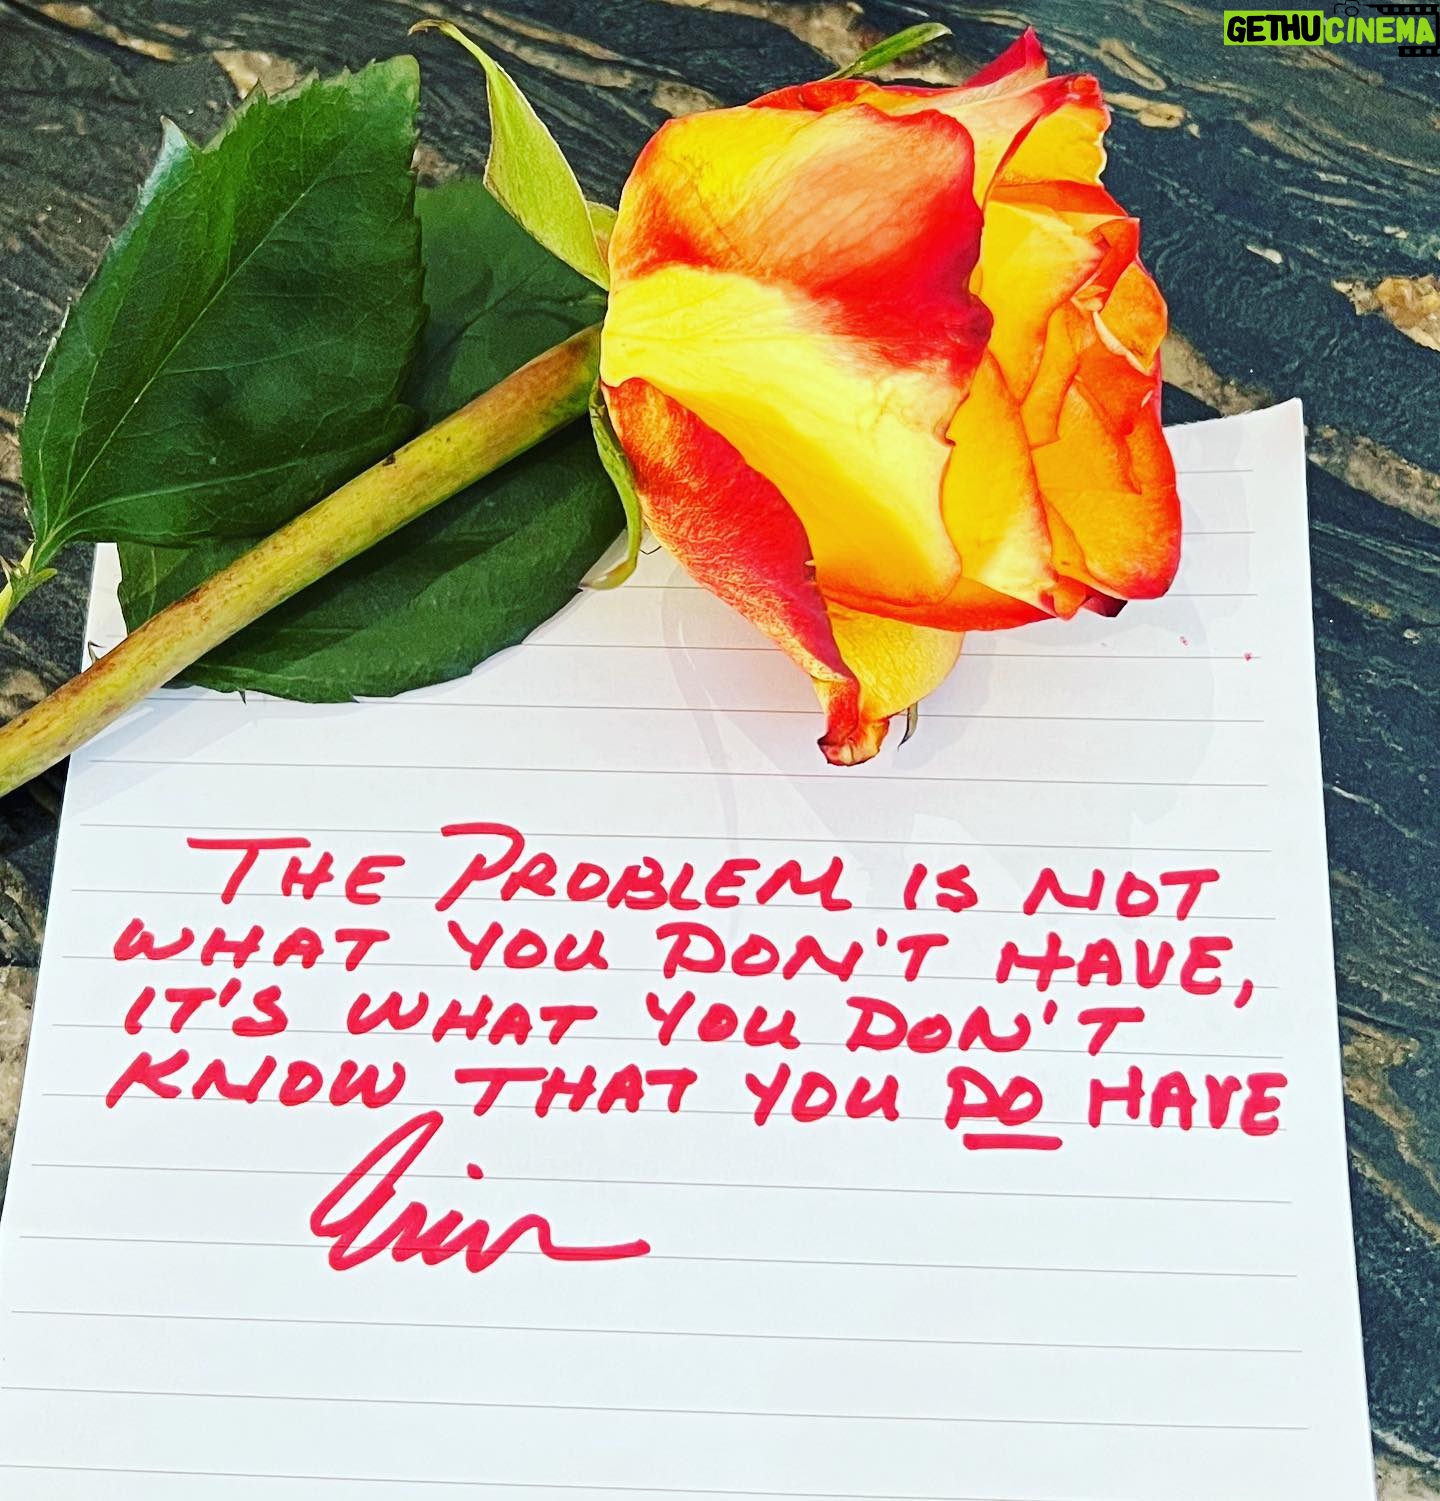 GETHUCINEMA
THE PROBLEM IS NOT
WHAT YOU DON'T HAVE,
IT'S WHAT YOU DON'T
KNOW THAT YOU DO HAVE